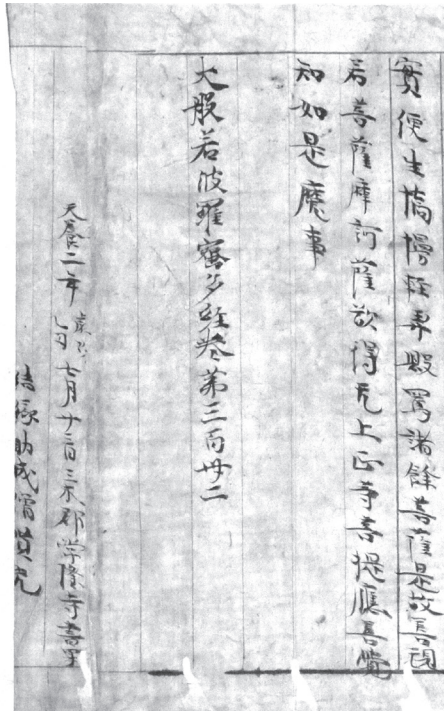 實便生憍慢輕弄毀罵諸餘菩薩是故善現
若菩薩摩訶薩欲得无上正等菩提應善覺
知如是魔事
大般若波羅蜜多經卷第三百卅二
天養二年歳次乙丑七月廿二日三木郡常隆寺書了
結縁助成僧賢